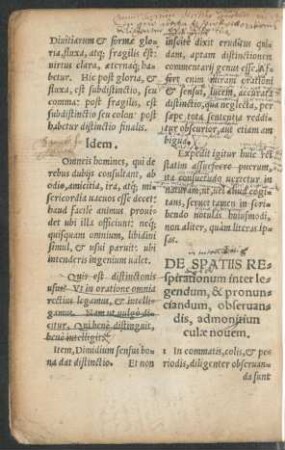 Divitiarum & formæ glo-
ria, fluxa, atq; fragilis est:
virtus clara, æternaq; ha-
betur. Hic post gloria, &
fluxa, est subdistinctio, seu
comma: post fragilis, est
subdistinctio, seu colon: post
habetur distinctio finalis.
Idem.
Omneis homines, qui de
rebus dubijs consultant, ab
odio, amicitia, ira, atq; mi-
sericordia vacuos esse decet:
haud facile animus provi-
det ubi illa officiunt: neq;
quisquam omnium, libidini
simul, & usui paruit: ubi
intenderis ingenium valet.
Quis est distinctionis
usus? Ut in oratione omnia
rectius legamus, & intelli-
gamus. Nam ut vulgo di-
citur, Qui bene distinguit,
bene intelligit.
Item, Dimidium sensus bo-
na dat distinctio. Et non
inscite dixit eruditus qui-
dam, aptam distinctionem
commentarij genus esse. Af-
fert enim miram orationi
& sensui, lucem, accurata
distinctio, qua neglecta, per
sæpe tota sententia redditur
obscurior, aut etiam am
bigua.
Expedit igitur huic
statim assuescere puerum,
ita consuetudo vertetur in
naturam, ut, vel aliud cogi-
tans, servet tamen in scri-
bendo notulas huiusmodi,
non aliter, quam literas ip-
sas.
DE SPATIIS RE-
spirationum inter le-
gendum, & pronun-
ciandum, observan-
dis, admonitiun
culæ novem.
1 In commatis, colis, & pe-
riodis, diligenter observan-
da sunt